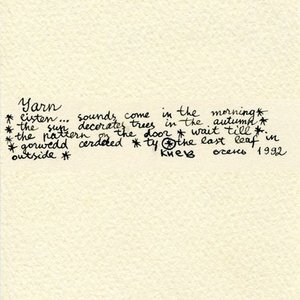 Yarn
* listen... sounds come in the morning *
* the sun decorates trees in the autumn *
* the pattern on the door * wait till *.
* gorwedd cerdded * ty * the last leaf in
outside * Киев осень 1992